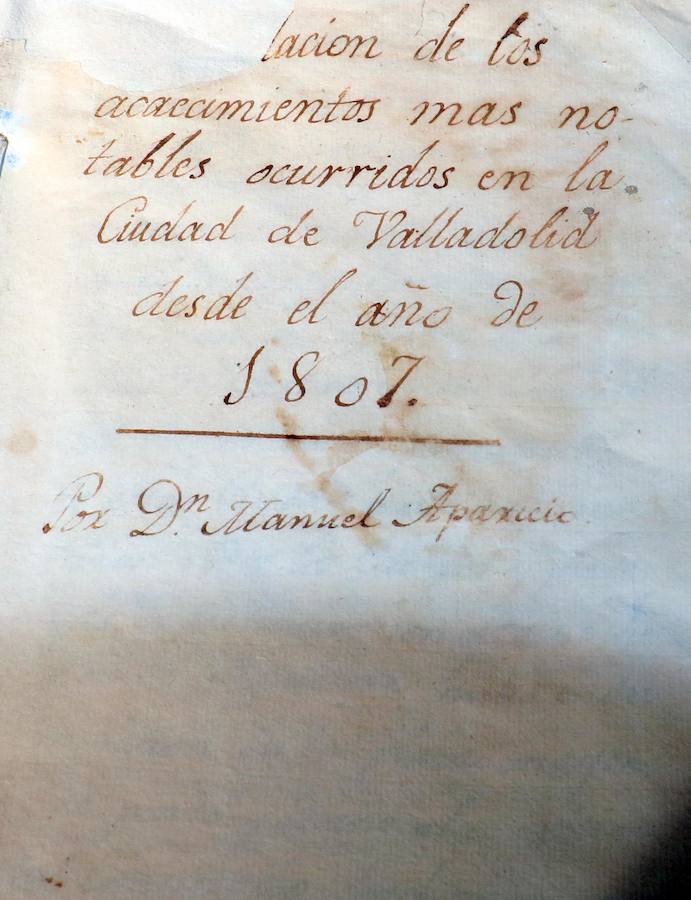 lacion de los
acaecimientos mas no-
tables ocurridos en la
Ciudad de Valladolid
desde el año de
1807.
Por Dn. Manuel Aparicio